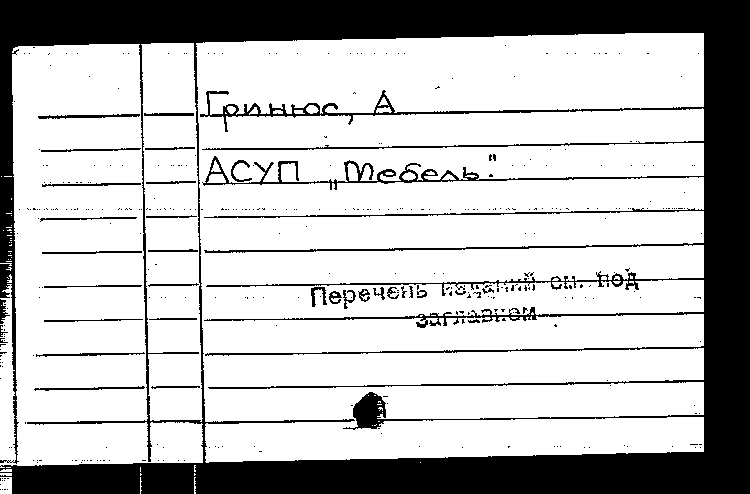 Гринюс, А
АСУП „Мебель".
Перечень изданий см. под
заглавием